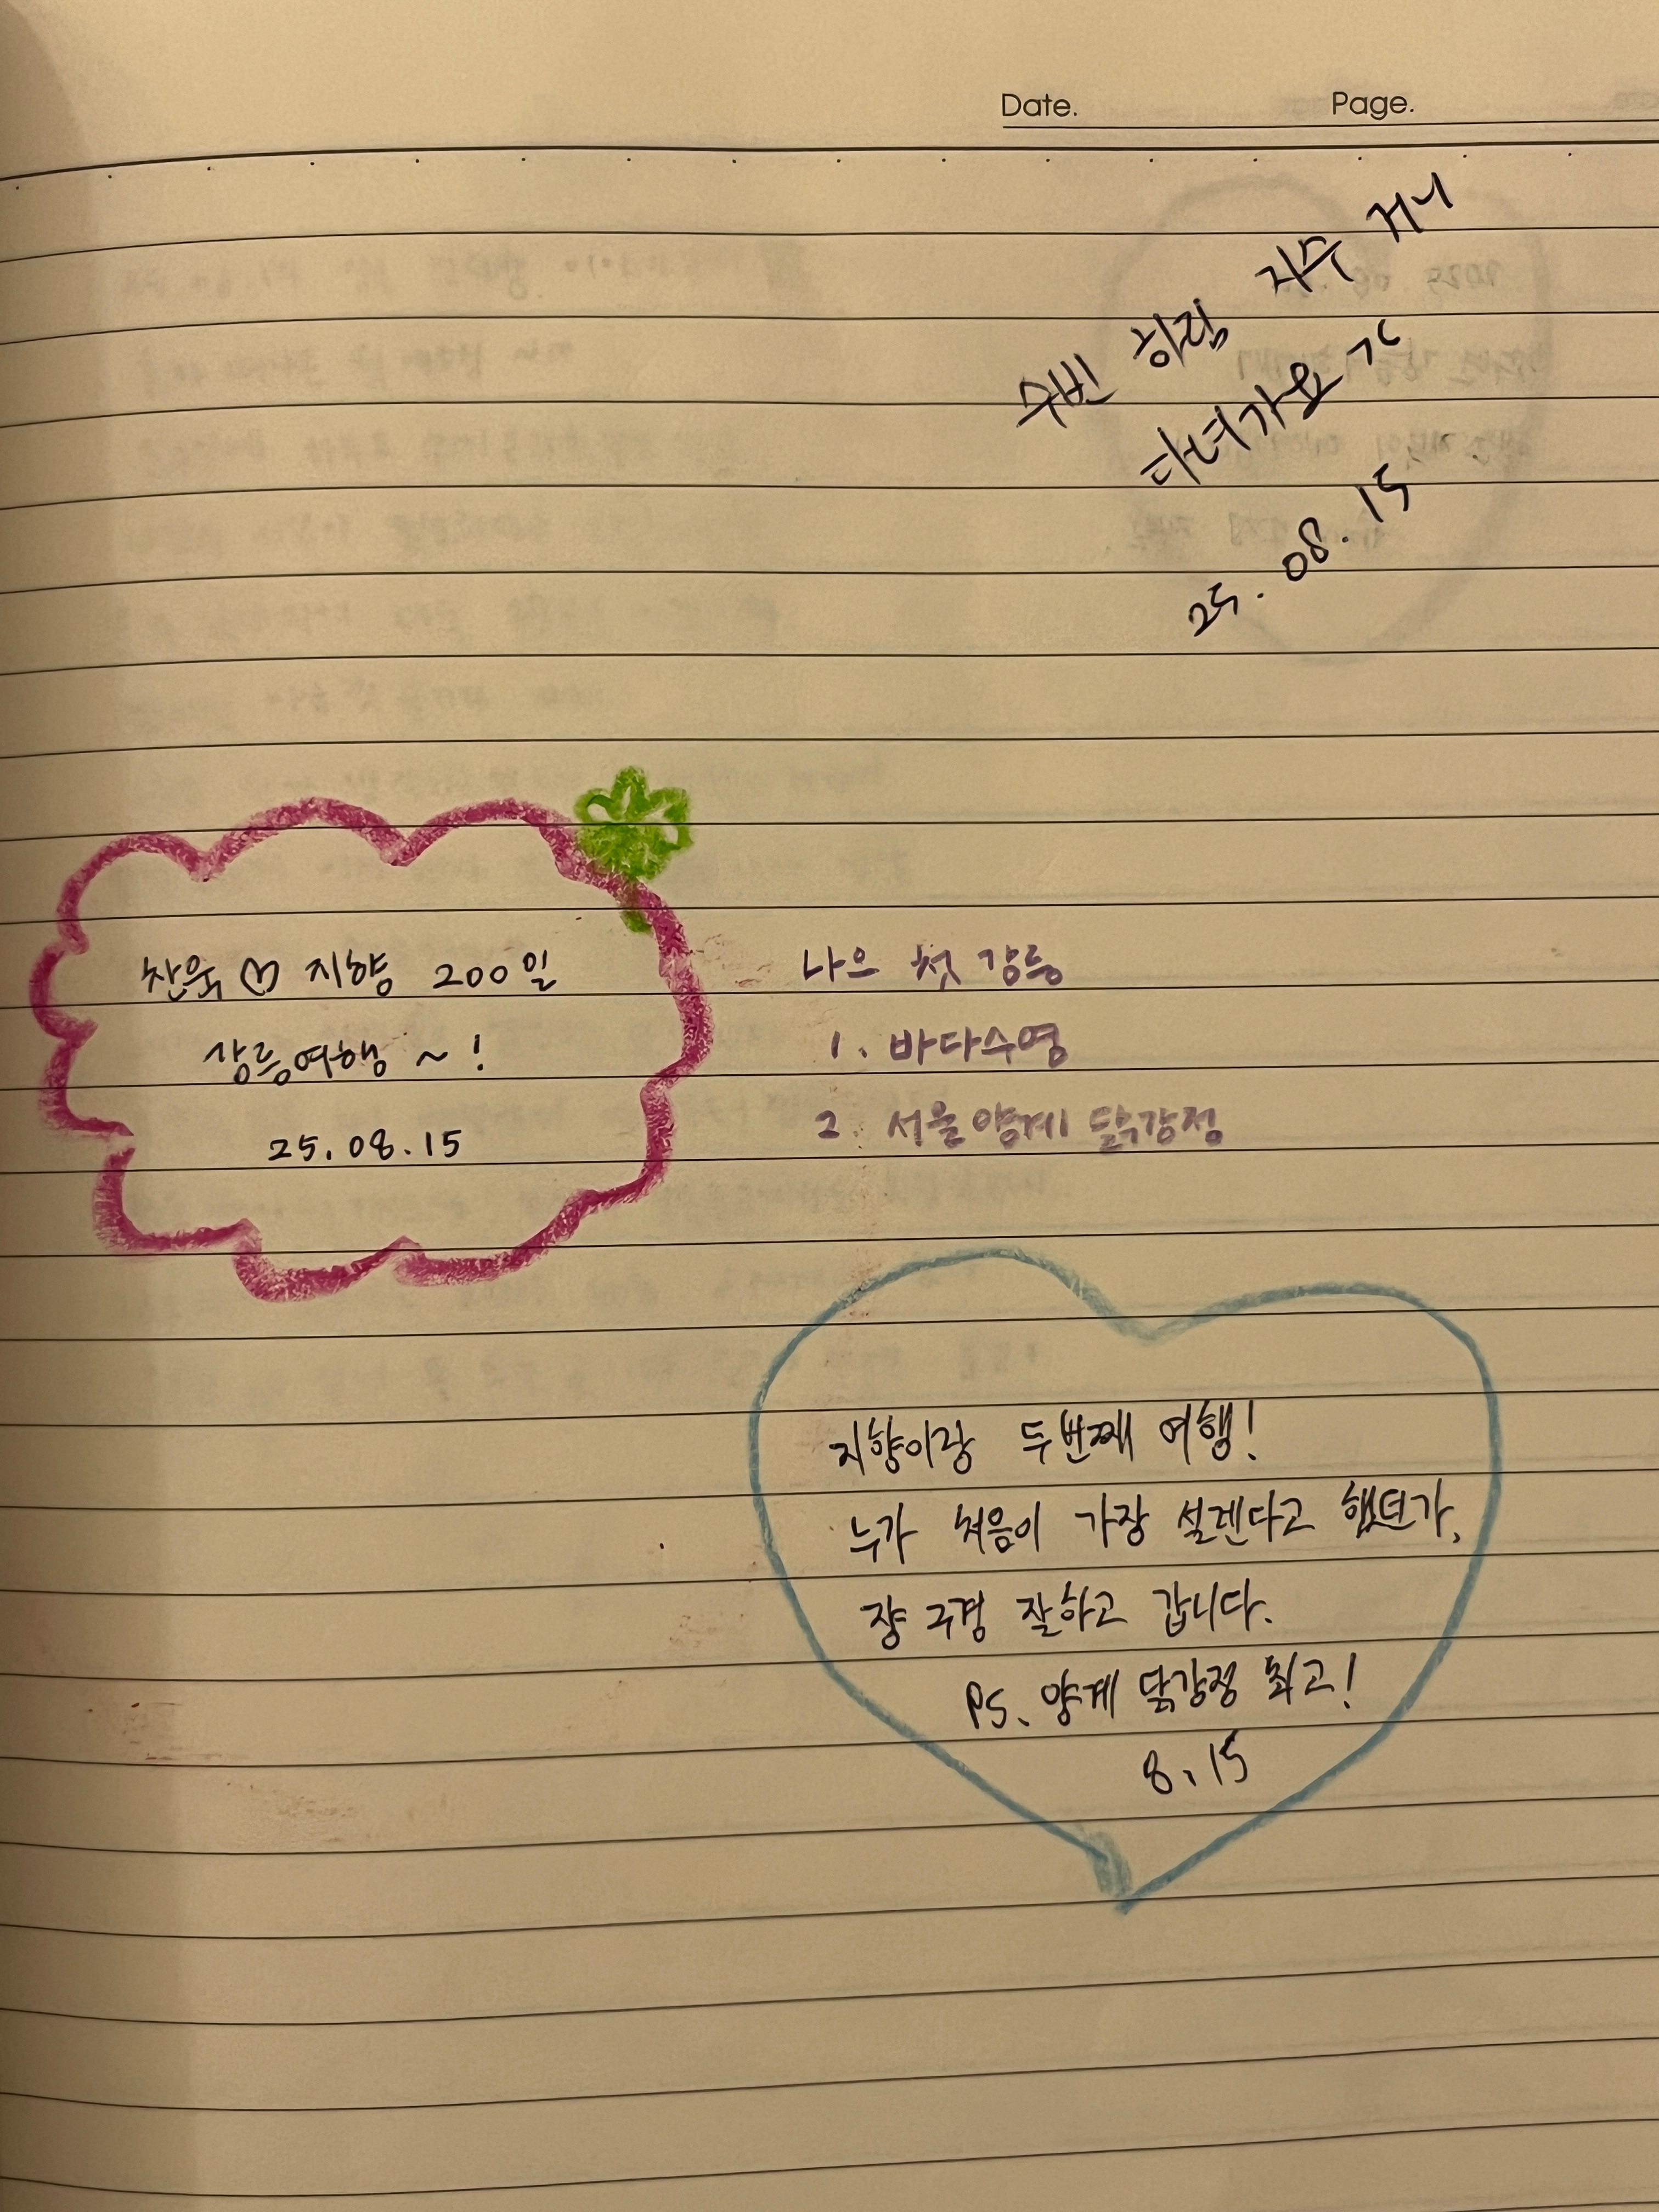 Date. Page.
수빈 하림 지수 거니
다녀가요 ㄱㄷ
25. 08. 15
찬욱 ♡ 지향 200일
강릉여행 ~!
25.08.15
나으 첫 강릉
1. 바다수영
2. 서울양계 닭강정
지향이랑 두번째 여행!
누가 처음이 가장 설렌다고 했던가,
쟝 구경 잘하고 갑니다.
PS. 양계 닭강정 최고!
8.15